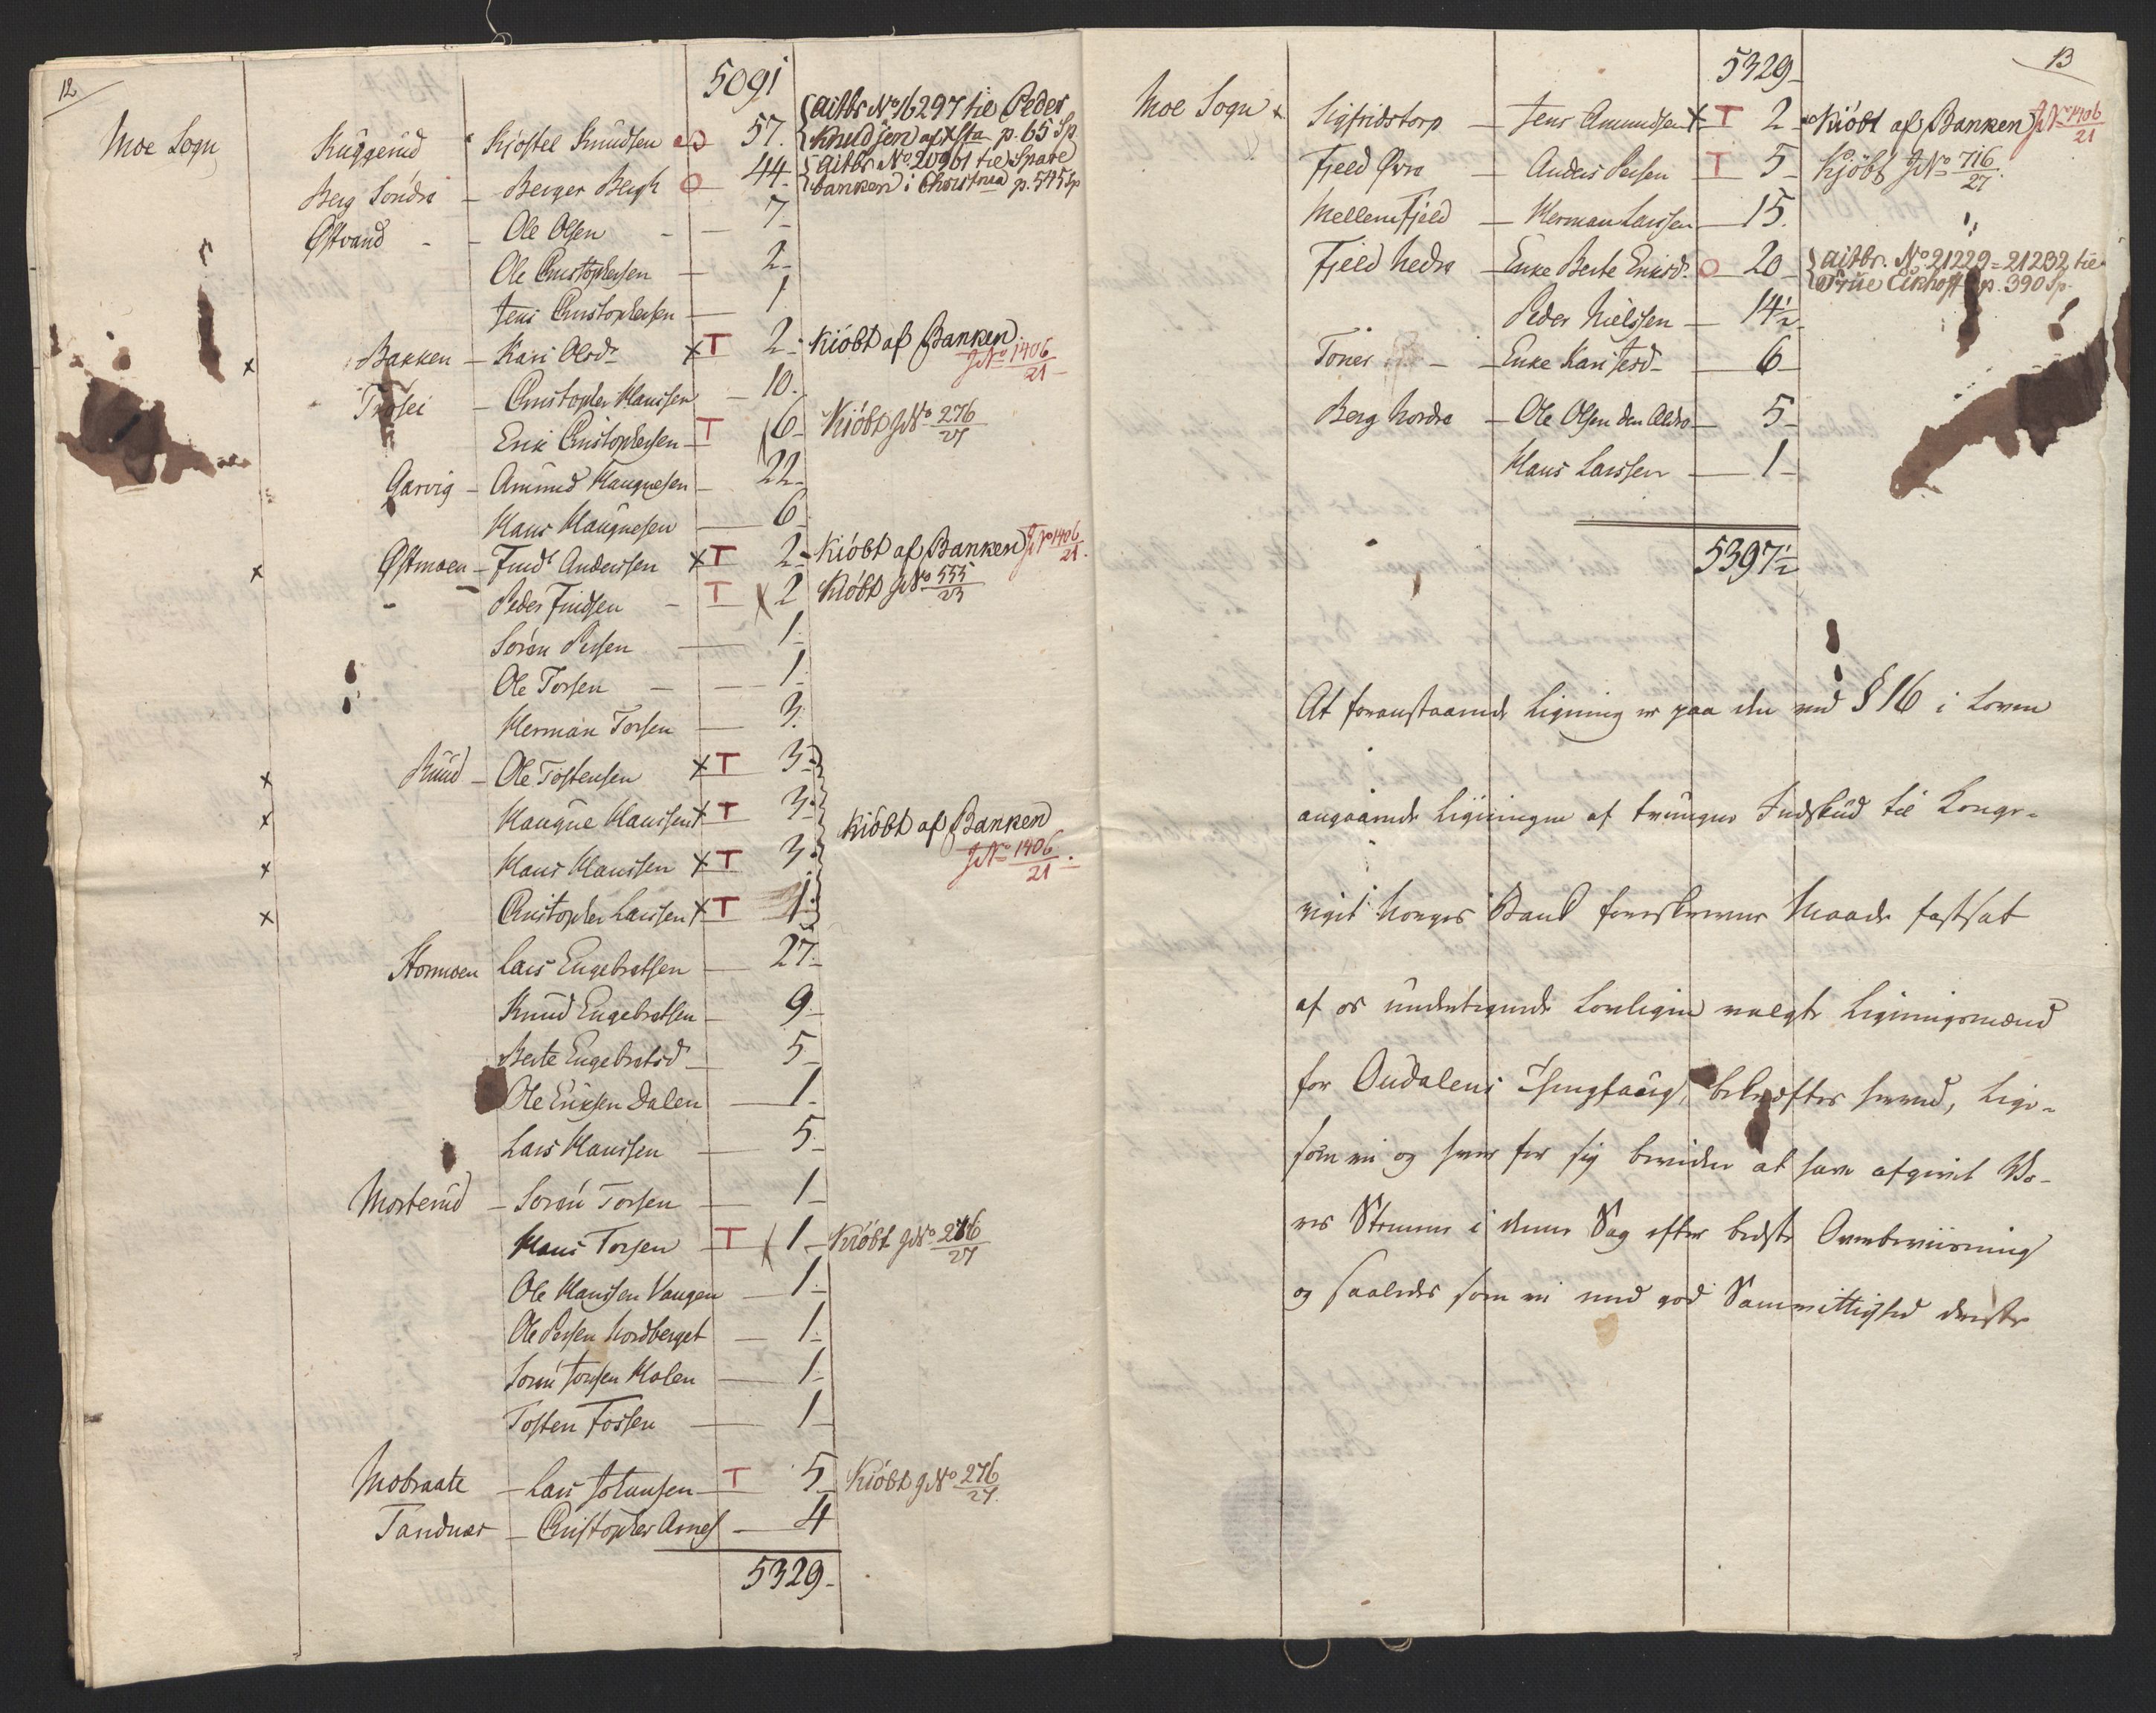 12
5091
Moe Sogn Ruggerud Kjöstel Knudsen O 57. Actbr No 16297 til Peder
Knudsen af Xsta p. 65 Sp
Berg Söndre - Berger Bergh O 44 - Actbr No 20961 til Spare
banken i Christnia p. 545 Sp
Østvand - - Ole Olsen - 7 -
Ole Christophersen - 2 -
Jens Christophersen - 1
x Bakken - Kari Olsdr x T 2 - Kiöbt af Banken
JNo 1406/21
Trösei - Christopher Hanssen - 10.
Erik Christophersen - T 6 - Kiöbt JNo 276/27
Garvig - Amund Haugnesen - 22 -
Hans Haugnesen - 6
x Østmoen - Find Anderssen x T 2 - Kiöbt af Banken JNo 1406/21
- - Peder Findsen - T 2 Kiöbt JNo 555/23
Sören Persen - 1 -
Ole Torsen - 1
Herman Torsen - 3.
x Ruud - Ole Tostensen x T 3 -
x Haugne Hanssen x T 3 - Kiöbt af Banken
x Hans Hanssen x T 3 - JNo 1406/21
x Christopher Larssen x T 1 -
Stormoen Lars Engebretsen - 27 -
Knud Engebretsen - 9 -
Berte Engebretsd - 5 -
Ole Ericksen Dalen - 1 -
Lars Hanssen - 5 -
Morterud - Sörén Torsen - 1 -
Hans Torsen - T 1 - Kiöbt JNo 276/27
Ole Hanssen Vangen - 1 -
Ole Persen Nordberget - 1 -
Sören Jonsen Holen - 1 -
Tosten Fossen - 1 -
Mobraate - Lars Johansen - T 5 Kiöbt JNo 276/27
Tandnes - Christopher Arnes - 4
5329 -
13
5329 -
Moe Sogn x Sigfridstorp - Jens Amundsen x T 2 - Kiöbt af Banken JNo 1406/21
Fjeld Øvre - Anders Persen T 5 - Kjöbt JNo 716/27
Mellem Fjeld - Herman Larssen - 15.
Fjeld Nedre - Enke Berte Ericsdr O 20 - Actbr. No 21229 = 21232 til
Frue Eckhoff p. 390 Sp.
Peder Nielssen - 14½ -
Toner - Enke Kari Jensd - 6 -
Berg Nordre - Ole Olsen den Ældre - 5 -
Hans Larssen - 1 -
5397½
At foranstaaende Ligning er paa den ved § 16 i Loven
angaaende Ligningen af tvungne Indskud til Konge-
riget Norges Bank foreskrevne Maade fastsat
af os undertegnede Lovligen valgte Ligningsmænd
for Oudalens Thinglaug, bekræftes herved, lige-
som vi og hver for sig bevidne at have afgivet Vo-
res Stemme i denne Sag efter bedste Overbeviisning
og saaledes som vi med god Samvittighed derefter